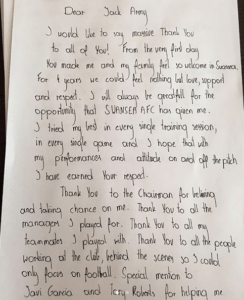 Dear Jack Army
I would like to say massive Thank You
to all of You! From the very first day
You made me and my family feel so welcome in Swansea.
For 4 years we could feel nothing but love, support
and respect. I will always be greatfull for the
opportunity that SWANSEA AFC has given me.
I tried my best in every single training session,
in every single game and I hope that with
my performances and attitude on and off the pitch
I have earned Your respect.
Thank You to the Chairman for believing
and taking chance on me. Thank You to all the
managers I played for. Thank You to all my
teammates I played with. Thank You to all the people
working at the club, behind the scenes so I could
only focus on football. Special mention to
Javi Garcia and Tony Roberts for helping me